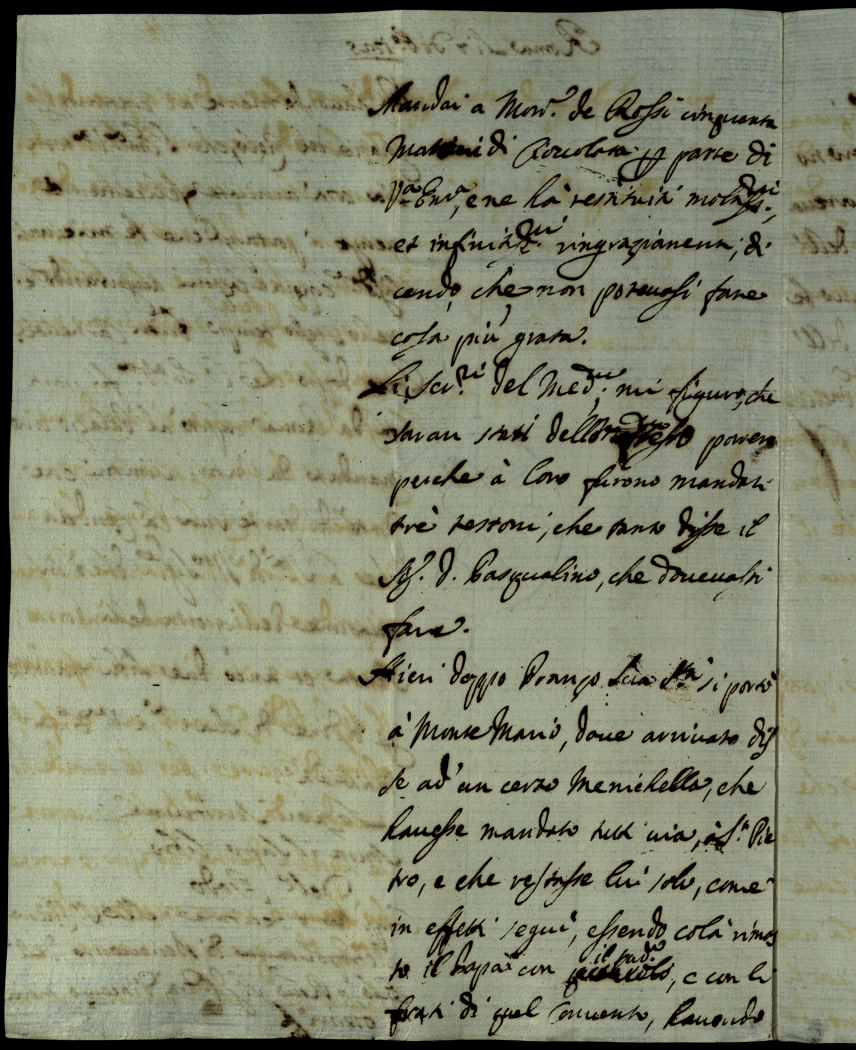 Mandai a Mons.r de Rossi cinquanta
Mattoni di Cioccolata p parte di
V.a Em.a, e ne hà restituiti moltiss.mi,
et infiniti ringraziamenti, di-
cendo, che non potevasi fare
cosa più grata.
Li Ser.ri del Med.mo mi figuro, che
saran stati dell' istesso parere
perche à loro furono mandati
trè testoni, che tanto disse il
Sig.r D. Pasqualino, che dovevasi
fare.
Hieri doppo Pranzo Sua S.tà si portò
à Monte Mario, dove arrivato dis
se ad' un certo Menichella, che
havesse mandato tutti via, à S.n Pie
tro, e che restasse lui solo, come
in effetti seguì, essendo colà rimas
to il Papa con il sud.o, e con li
frati di quel Convento, havendo